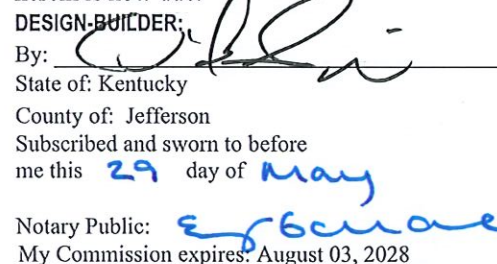 DESIGN-BUILDER:
By:
State of: Kentucky
County of: Jefferson
Subscribed and sworn to before
me this 29 day of May
Notary Public:
My Commission expires: August 03, 2028